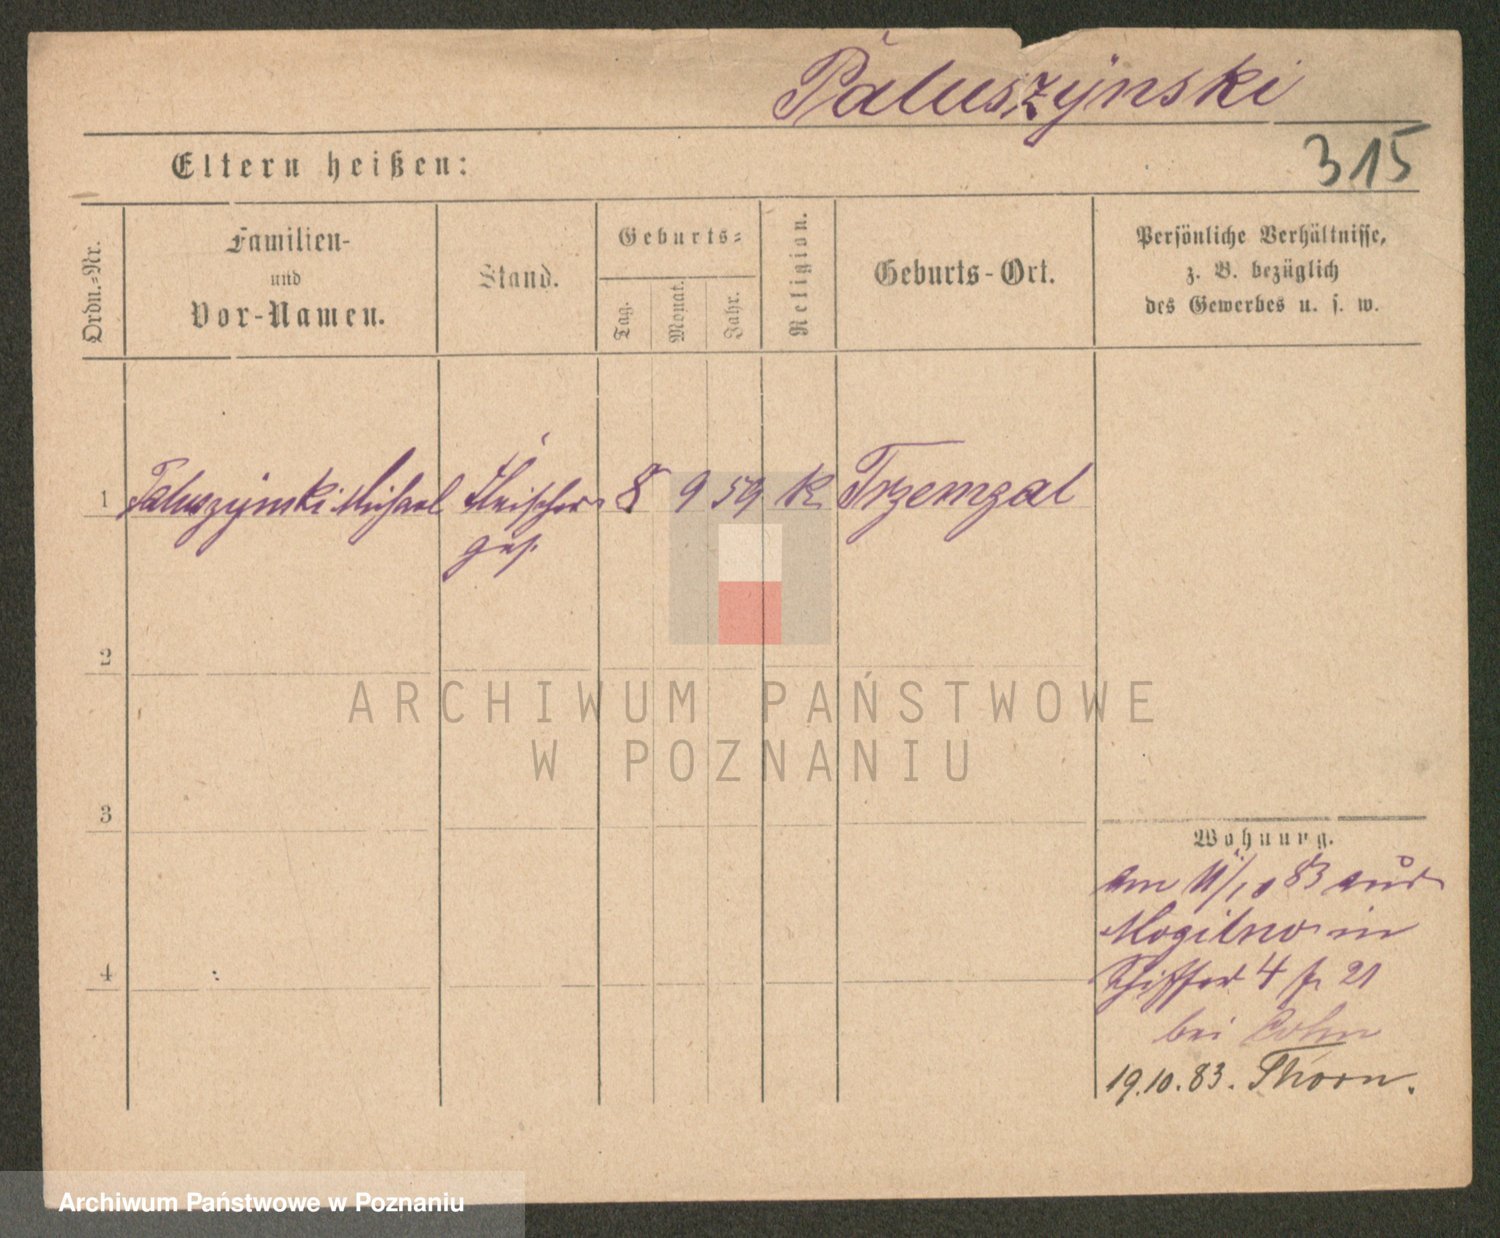 Paluszynski
315
Eltern heißen:
Ordn.=Nr.
Familien-
und
Vor-Namen.
Stand.
Geburts=
Tag.
Monat.
Jahr.
Religion.
Geburts-Ort.
Persönliche Verhältnisse,
z. B. bezüglich
des Gewerbes u. s. w.
1 Paluszynski Michael Fleischer 8 9 59 K. Trzemzal
ges.
2
3
4
Wohnung.
am 11/10 83 aus
Mogilno in
Schiffer 4 21
bei Cohn
19.10.83. Thorn.
ARCHIWUM PAŃSTWOWE
W POZNANIU
Archiwum Państwowe w Poznaniu